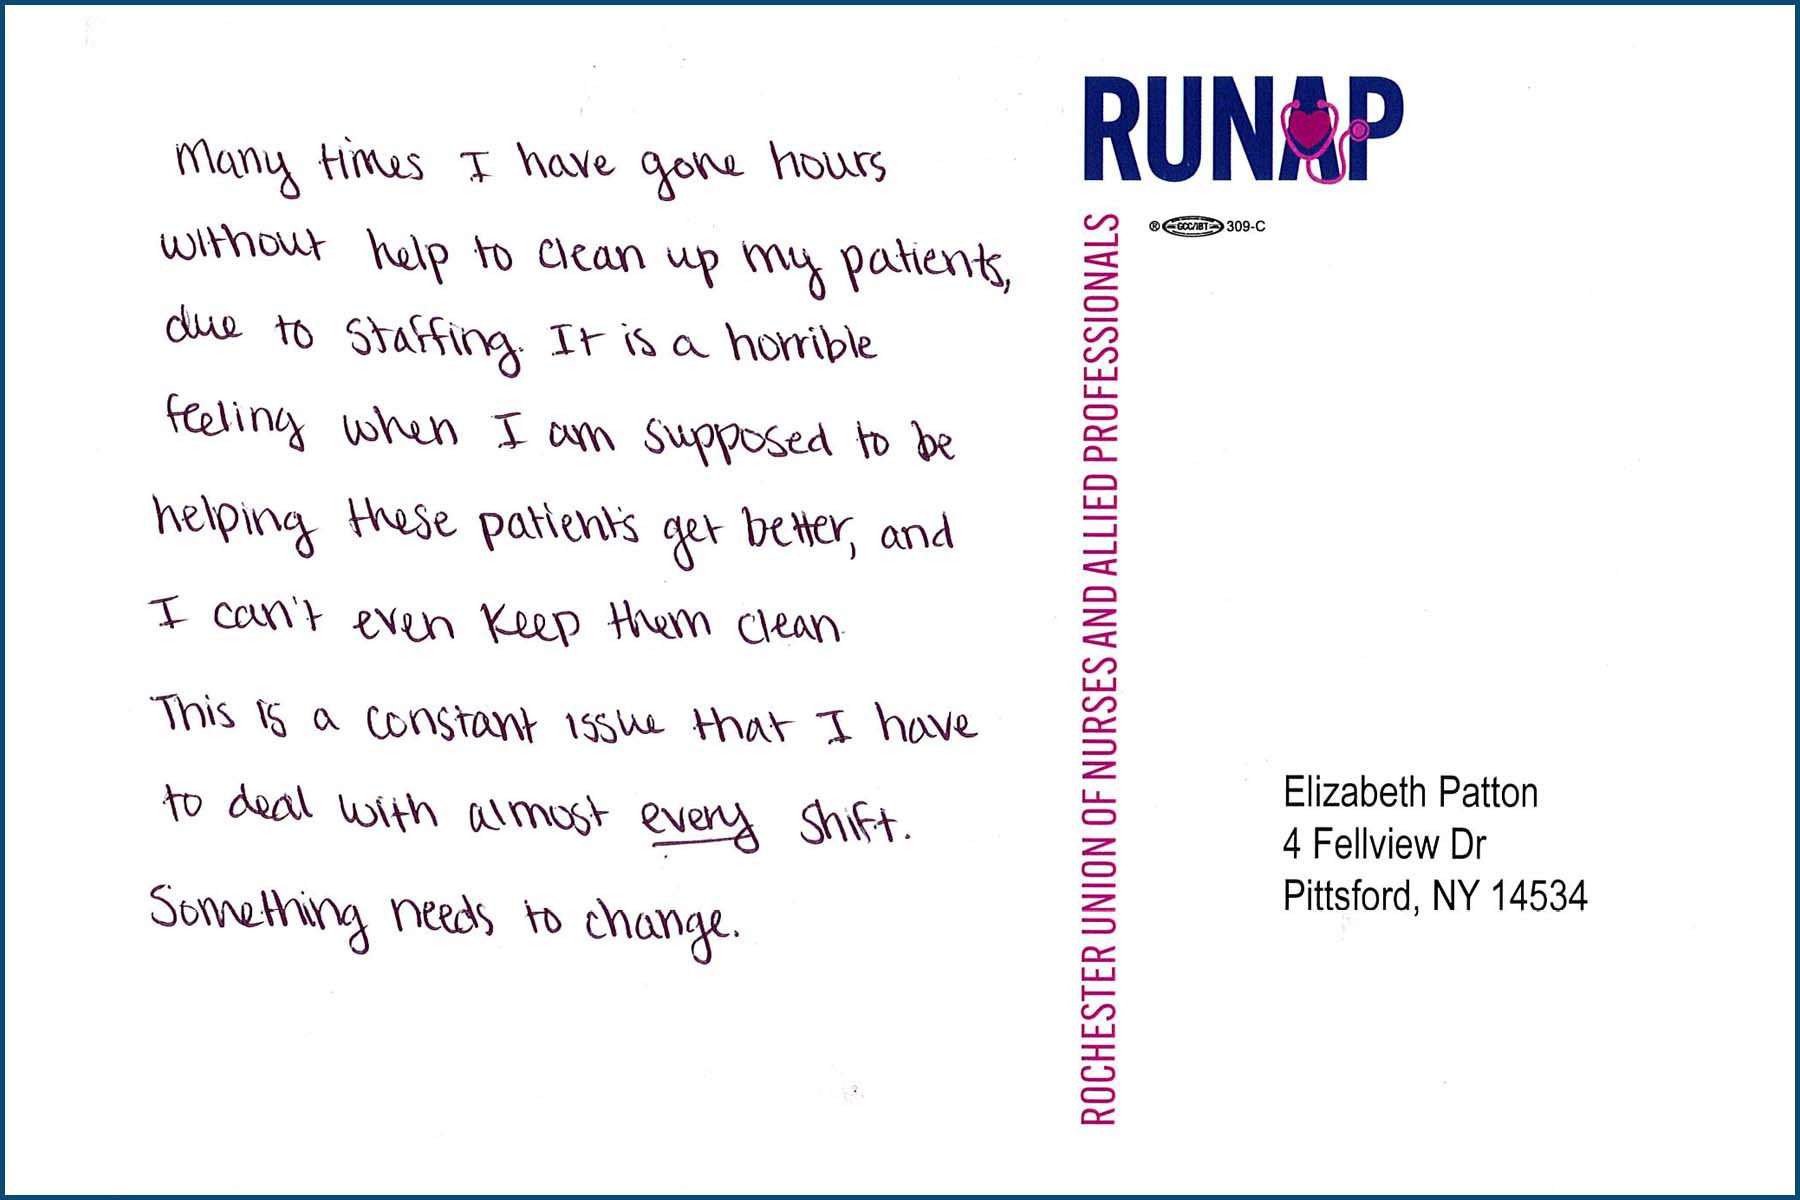 Many times I have gone hours
without help to clean up my patients,
due to staffing. It is a horrible
feeling when I am supposed to be
helping these patients get better, and
I can't even keep them clean.
This is a constant issue that I have
to deal with almost every shift.
Something needs to change.
RUNAP
® GCC/IBT 309-C
ROCHESTER UNION OF NURSES AND ALLIED PROFESSIONALS
Elizabeth Patton
4 Fellview Dr
Pittsford, NY 14534